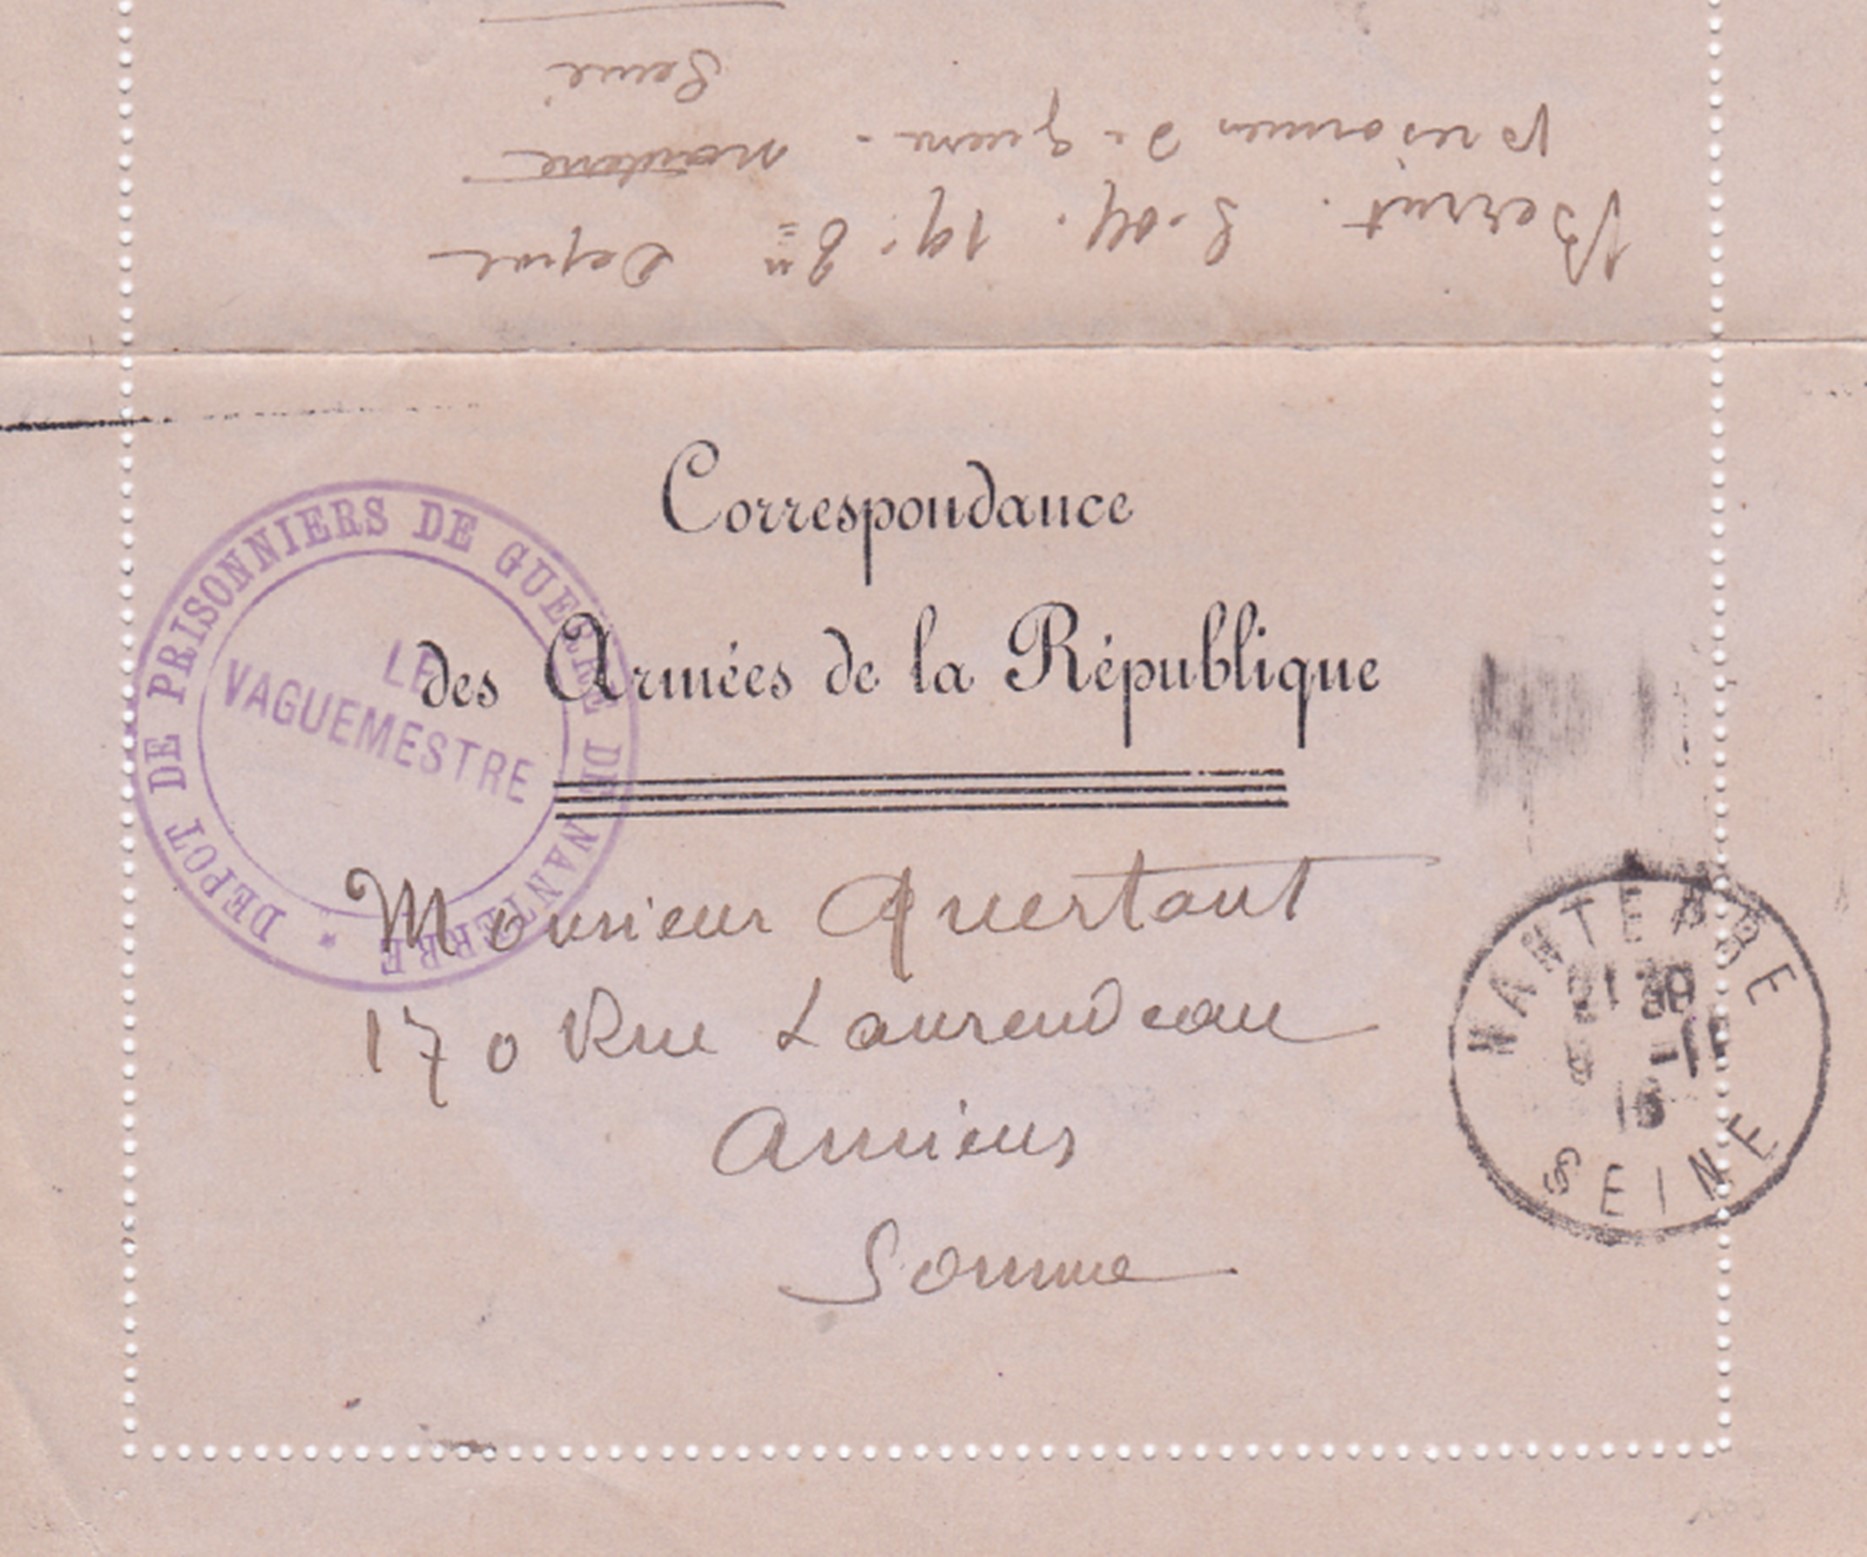 Berrut. S.off. 19. 8 Depot
prisonnier de guerre. Nanterre
Seine
Correspondance
des Armées de la République
DEPOT DE PRISONNIERS DE GUERRE DE NANTERRE *
LE
VAGUEMESTRE
Monsieur Quertant
170 Rue Laurendeau
Amiens
Somme
NANTERRE
21 30
-11
16
SEINE